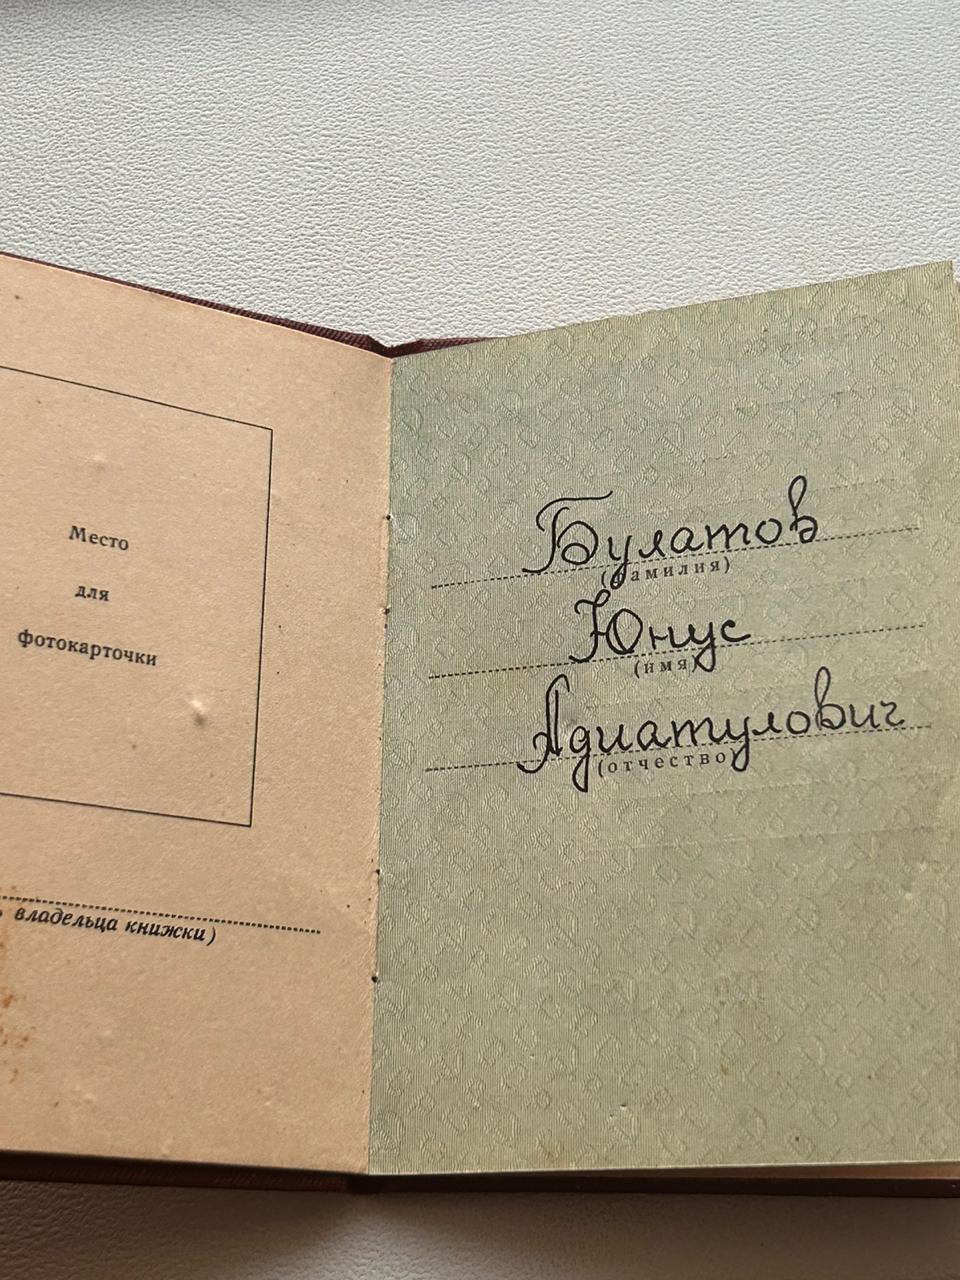 Место
для
фотокарточки
владельца книжки)
Булатов
(фамилия)
Юнус
(имя)
Адиатулович
(отчество)